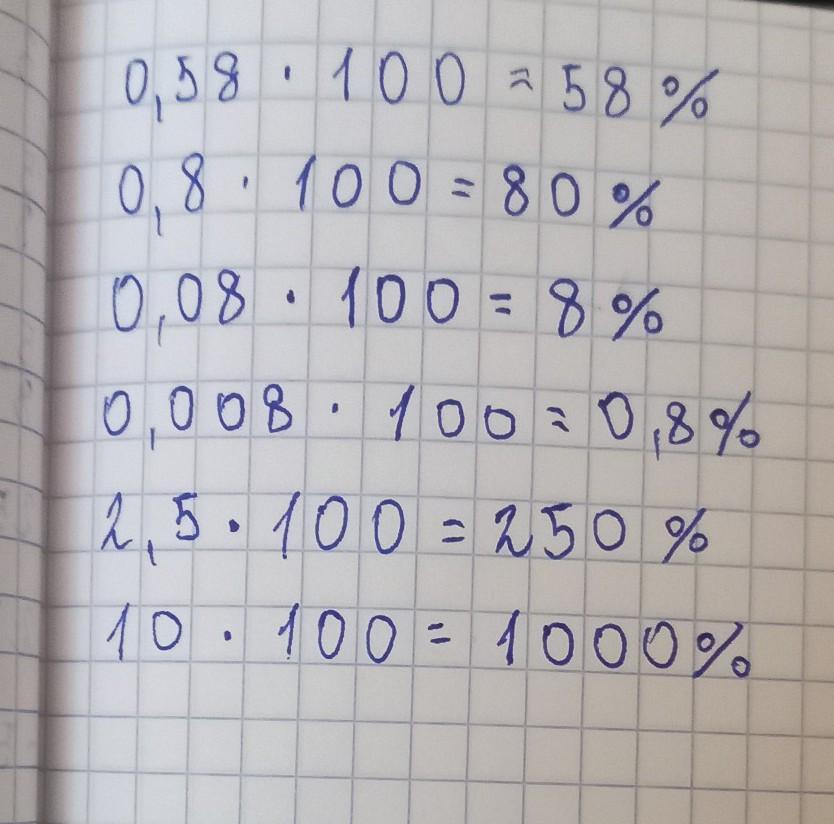 0,58 · 100 = 58 %
0,8 · 100 = 80 %
0,08 · 100 = 8 %
0,008 · 100 = 0,8 %
2,5 · 100 = 250 %
10 · 100 = 1000 %